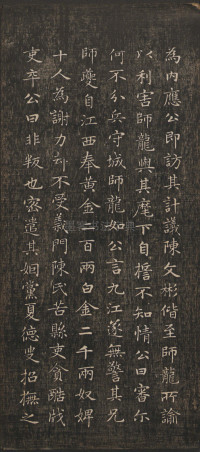 為内應公即訪其計議陳文彬偕至師龍所諭
以利害師龍與其麾下自誓不知情公曰審尒
何不分兵守城師龍如公言九江遂無警其兄
師夔自江西奉黄金二百兩白金二千兩奴婢
十人為謝力却不受義門陳氏苦縣吏貪酷戕
吏卒公曰非叛也密遣其姻黨夏德叟招撫之